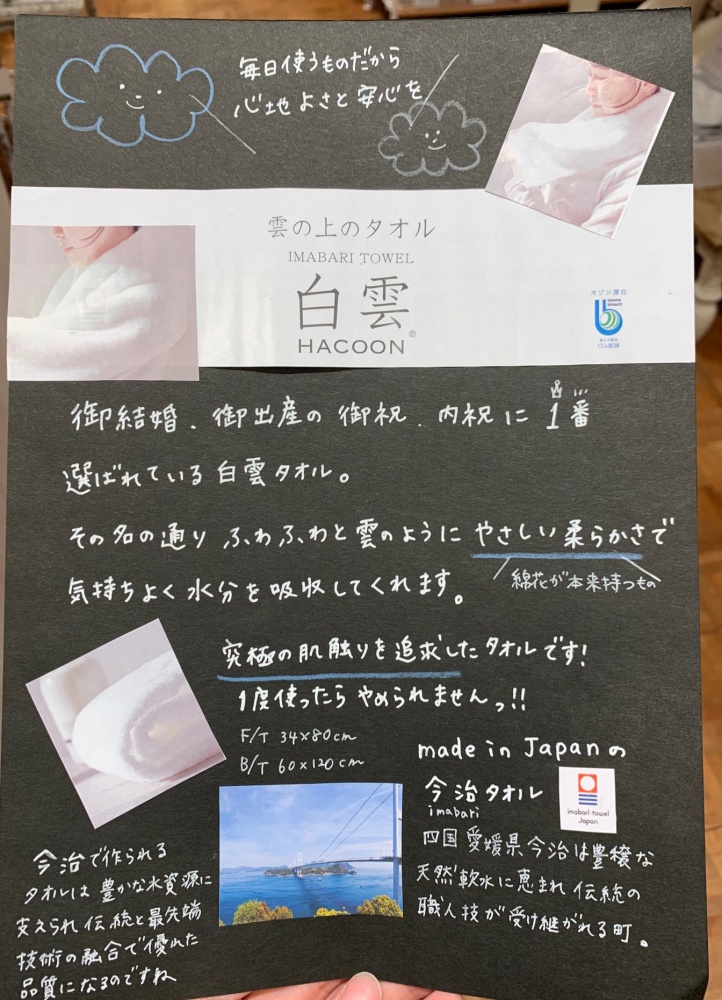 毎日使うものだから
心地よさと安心を
雲の上のタオル
IMABARI TOWEL
白雲
HACOON®
オゾン漂白
ozone
bleach
CO₂削減
御結婚、御出産の御祝、内祝に1番
選ばれている白雲タオル。
その名の通りふわふわと雲のようにやさしい柔らかさで
綿花が本来持つもの
気持ちよく水分を吸収してくれます。
究極の肌触りを追求したタオルです!
1度使ったらやめられませんっ!!
F/T 34×80cm
B/T 60×120cm
made in Japanの
今治タオル
imabari
imabari towel
Japan
四国愛媛県今治は豊穣な
天然軟水に恵まれ伝統の
職人技が受け継がれる町。
今治で作られる
タオルは豊かな水資源に
支えられ伝統と最先端
技術の融合で優れた
品質になるのですね